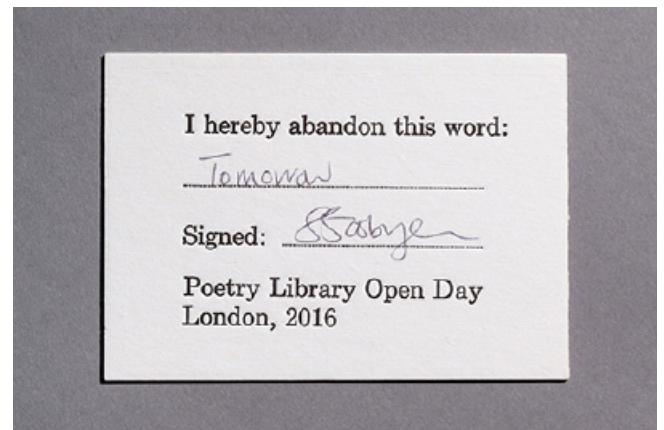 I hereby abandon this word:
Tomorrow
Signed:
Poetry Library Open Day
London, 2016